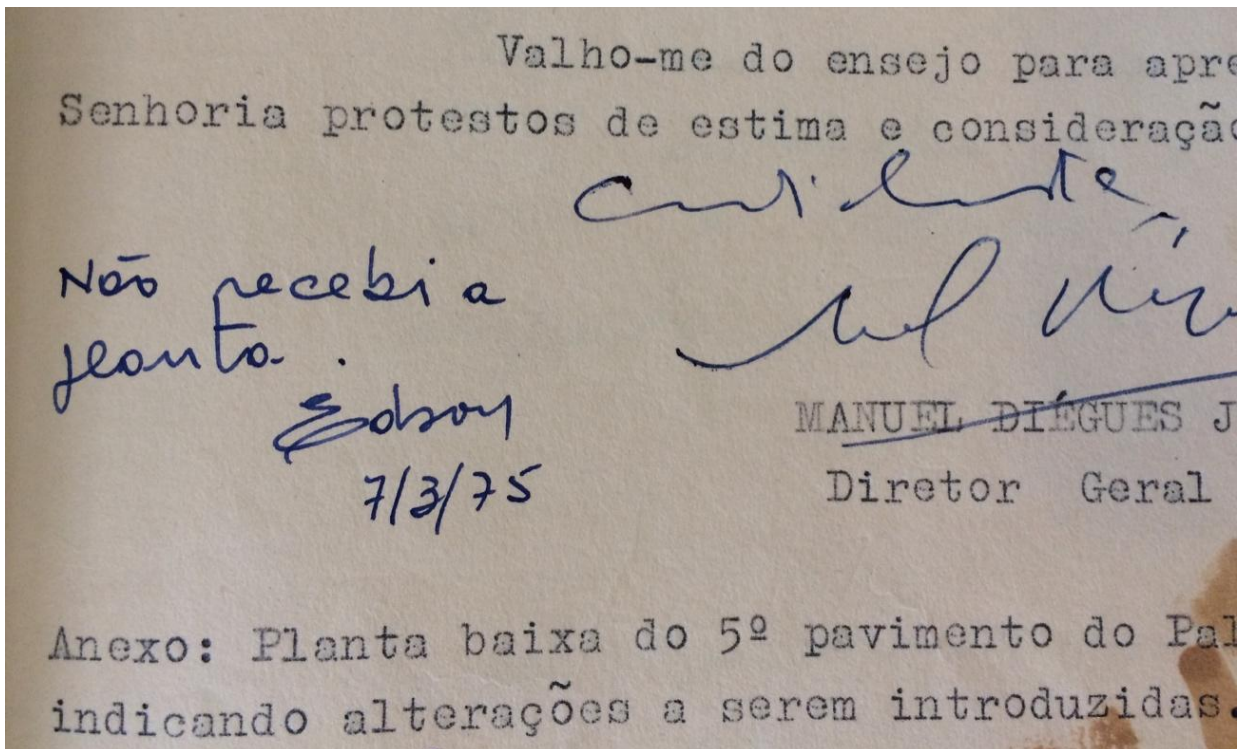 Valho-me do ensejo para apre
Senhoria protestos de estima e consideração
Não recebi a
planta.
Edson
7/3/75
MANUEL DIÉGUES J
Diretor Geral
Anexo: Planta baixa do 5º pavimento do Pal
indicando alterações a serem introduzidas.